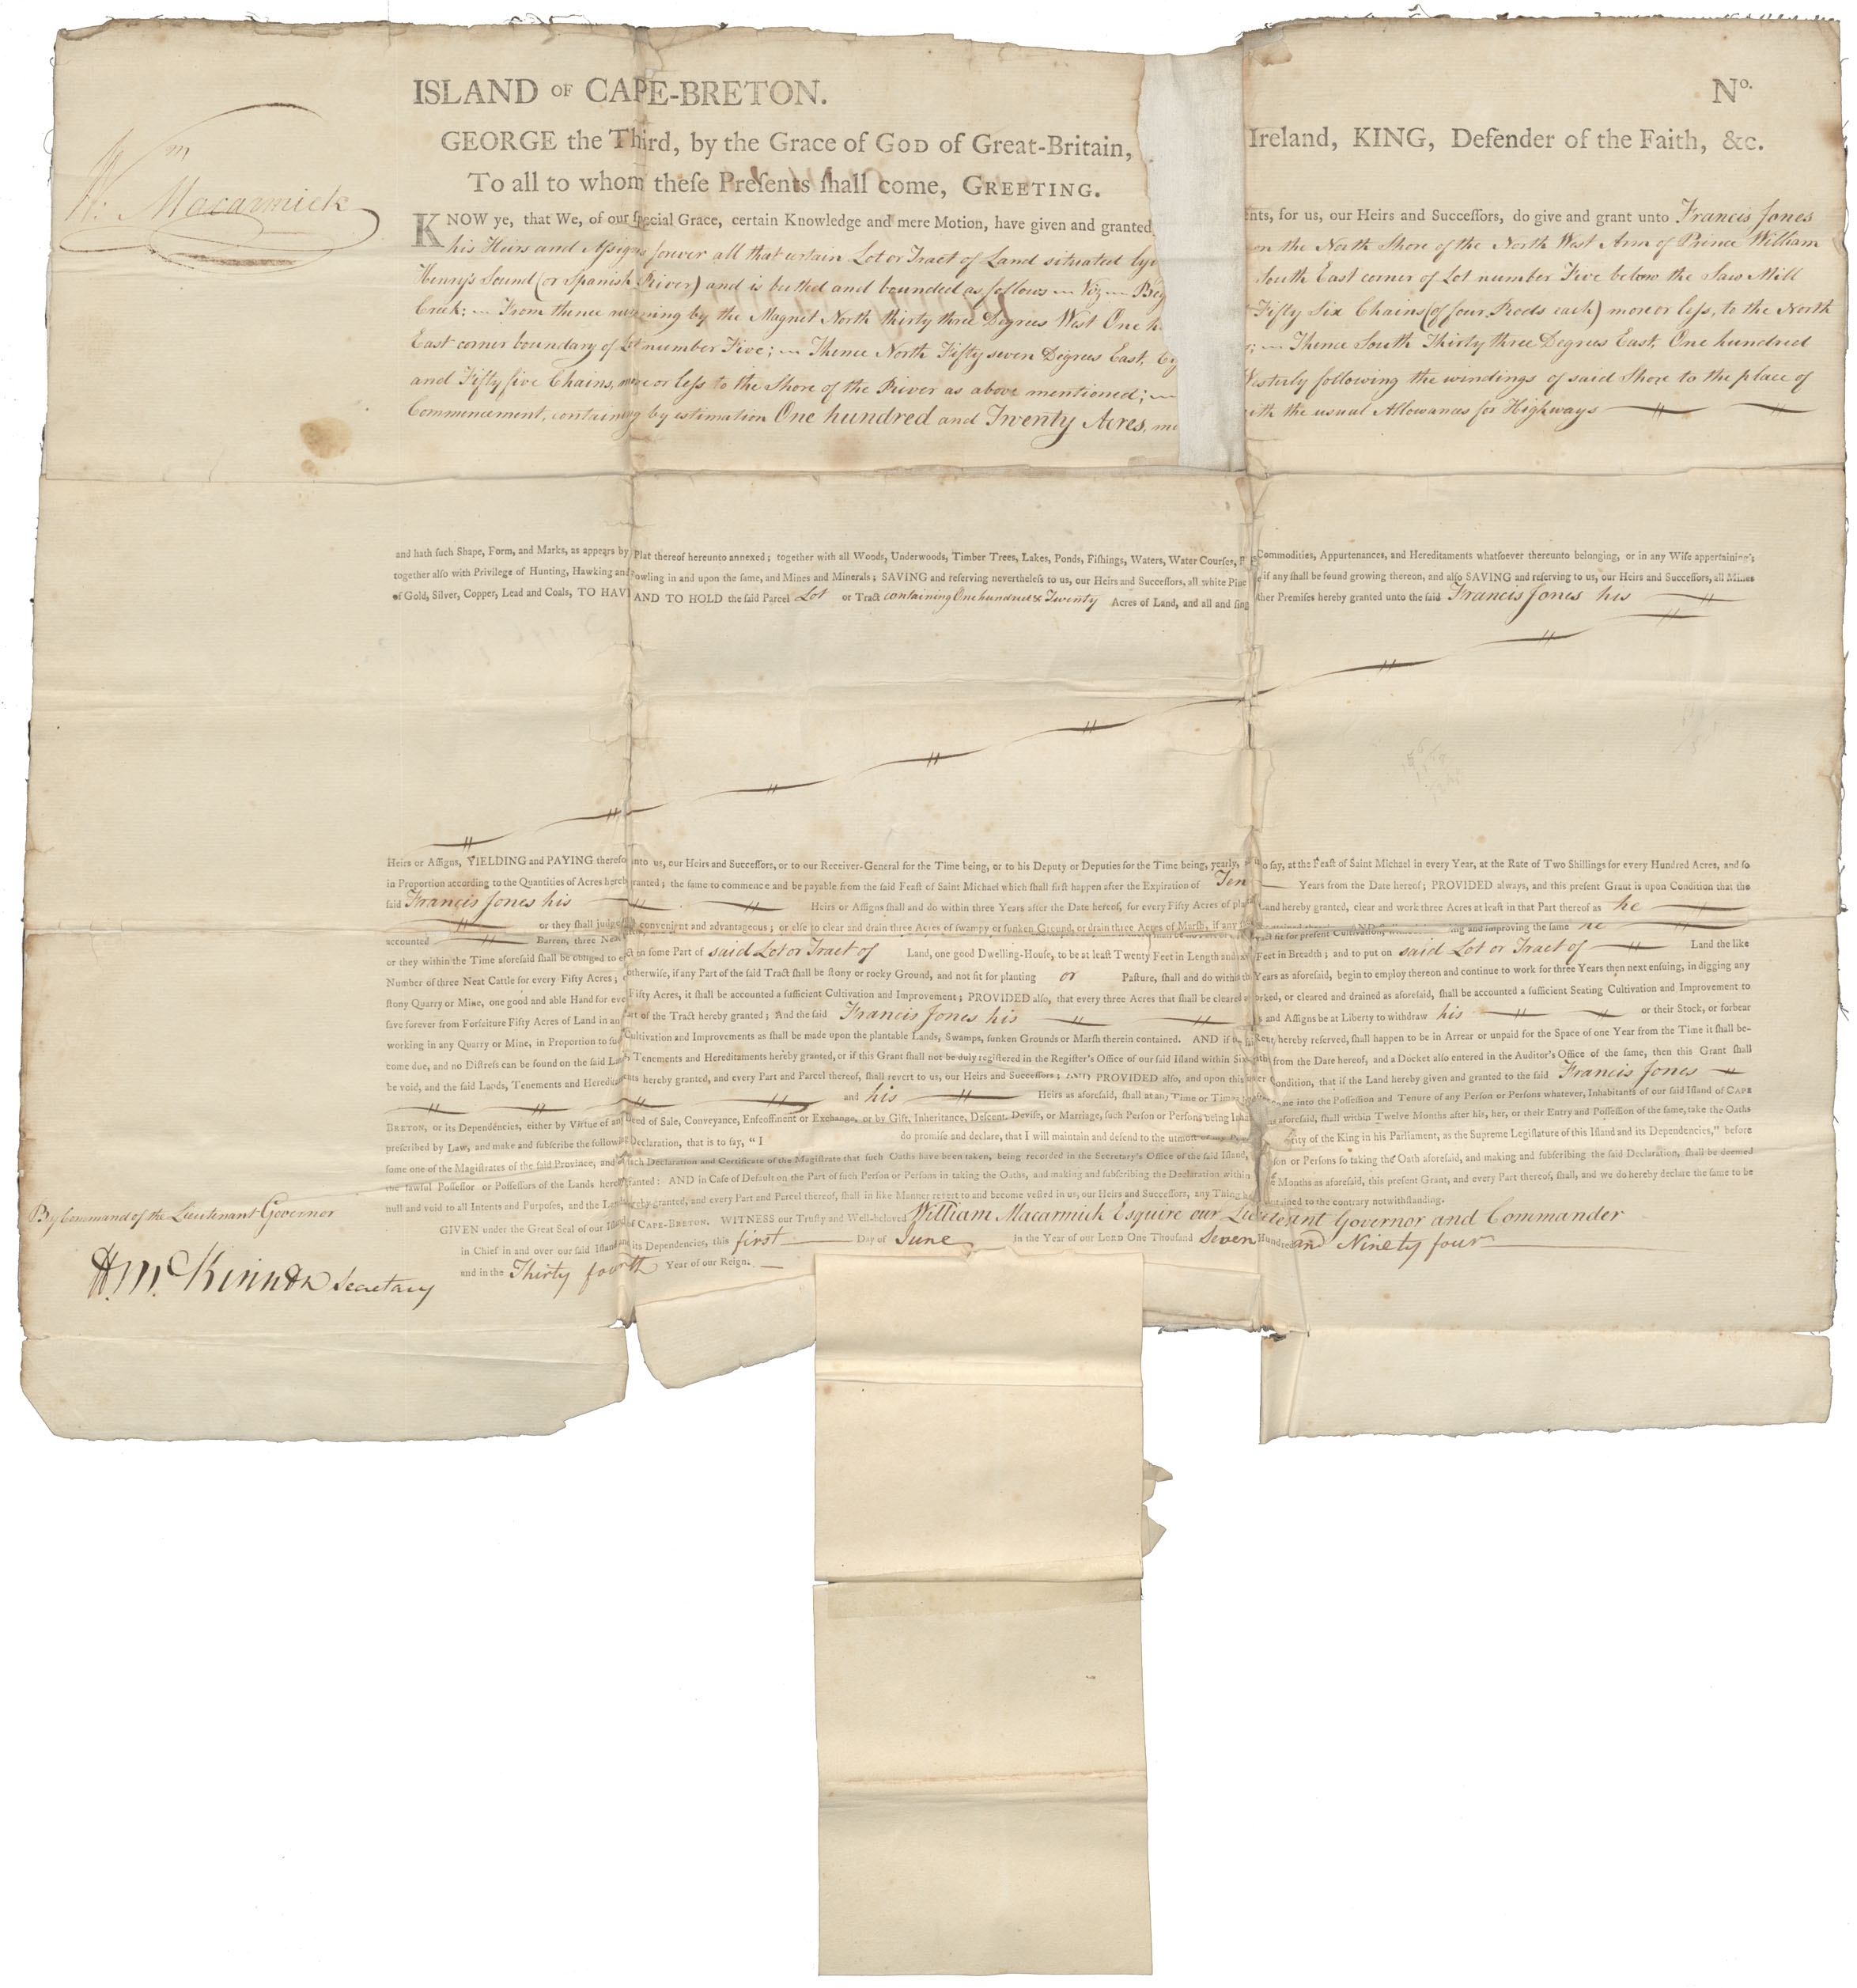 ISLAND OF CAPE-BRETON. No.
Wm Macarmick
GEORGE the Third, by the Grace of GOD of Great-Britain, Ireland, KING, Defender of the Faith, &c.
To all to whom theſe Preſents ſhall come, GREETING.
KNOW ye, that We, of our ſpecial Grace, certain Knowledge and mere Motion, have given and granted, for us, our Heirs and Succeſſors, do give and grant unto Francis Jones
his Heirs and Aſsigns forever all that certain Lot or Tract of Land situated on the North Shore of the North West Arm of Prince William
Henry's Sound (or Spanish River) and is butted and bounded as follows Viz South East corner of Lot number Five below the Saw Mill
Creek; From thence running by the Magnet North thirty three Degrees West One Fifty Six Chains (of four Rods each) more or leſs, to the North
East corner boundary of Lot number Five; Thence North Fifty seven Degrees East, Thence South Thirty three Degrees East, One hundred
and Fifty five Chains, more or leſs to the Shore of the River as above mentioned; Westerly following the windings of said Shore to the place of
Commencement, containing by estimation One hundred and Twenty Acres, with the usual Allowances for Highways
and hath ſuch Shape, Form, and Marks, as appears by Plat thereof hereunto annexed; together with all Woods, Underwoods, Timber Trees, Lakes, Ponds, Fiſhings, Waters, Water Courſes, Commodities, Appurtenances, and Hereditaments whatſoever thereunto belonging, or in any Wiſe appertaining;
together alſo with Privilege of Hunting, Hawking and Fowling in and upon the ſame, and Mines and Minerals; SAVING and reſerving nevertheleſs to us, our Heirs and Succeſſors, all white Pine if any ſhall be found growing thereon, and alſo SAVING and reſerving to us, our Heirs and Succeſſors, all Mines
of Gold, Silver, Copper, Lead and Coals, TO HAVE AND TO HOLD the ſaid Parcel Lot or Tract containing One hundred & Twenty Acres of Land, and all and ſing other Premiſes hereby granted unto the ſaid Francis Jones his
Heirs or Aſſigns, YIELDING and PAYING therefo unto us, our Heirs and Succeſſors, or to our Receiver-General for the Time being, or to his Deputy or Deputies for the Time being, yearly, to ſay, at the Feaſt of Saint Michael in every Year, at the Rate of Two Shillings for every Hundred Acres, and ſo
in Proportion according to the Quantities of Acres hereby granted; the ſame to commence and be payable from the ſaid Feaſt of Saint Michael which ſhall firſt happen after the Expiration of Ten Years from the Date hereof; PROVIDED always, and this preſent Grant is upon Condition that the
ſaid Francis Jones his Heirs or Aſſigns ſhall and do within three Years after the Date hereof, for every Fifty Acres of Land hereby granted, clear and work three Acres at leaſt in that Part thereof as he
or they ſhall judge convenient and advantageous; or elſe to clear and drain three Acres of ſwampy or ſunken Ground, or drain three Acres of Marſh, if any
accounted Barren, three Neat fit for preſent Cultivation, and improving the ſame he
or they within the Time aforeſaid ſhall be obliged to on ſome Part of said Lot or Tract of Land, one good Dwelling-Houſe, to be at leaſt Twenty Feet in Length and Feet in Breadth; and to put on said Lot or Tract of Land the like
Number of three Neat Cattle for every Fifty Acres; otherwiſe, if any Part of the ſaid Tract ſhall be ſtony or rocky Ground, and not fit for planting or Paſture, ſhall and do within Years as aforeſaid, begin to employ thereon and continue to work for three Years then next enſuing, in digging any
ſtony Quarry or Mine, one good and able Hand for Fifty Acres, it ſhall be accounted a ſufficient Cultivation and Improvement; PROVIDED alſo, that every three Acres that ſhall be cleared worked, or cleared and drained as aforeſaid, ſhall be accounted a ſufficient Seating Cultivation and Improvement to
ſave forever from Forfeiture Fifty Acres of Land in any Part of the Tract hereby granted; And the ſaid Francis Jones his and Aſſigns be at Liberty to withdraw his or their Stock, or forbear
working in any Quarry or Mine, in Proportion to ſuch Cultivation and Improvements as ſhall be made upon the plantable Lands, Swamps, ſunken Grounds or Marſh therein contained. AND if the Rent hereby reſerved, ſhall happen to be in Arrear or unpaid for the Space of one Year from the Time it ſhall be-
come due, and no Diſtreſs can be found on the ſaid Tenements and Hereditaments hereby granted, or if this Grant ſhall not be duly regiſtered in the Regiſter's Office of our ſaid Iſland within Six from the Date hereof, and a Docket alſo entered in the Auditor's Office of the ſame, then this Grant ſhall
be void, and the ſaid Lands, Tenements and Hereditaments hereby granted, and every Part and Parcel thereof, ſhall revert to us, our Heirs and Succeſſors; AND PROVIDED alſo, and upon this Condition, that if the Land hereby given and granted to the ſaid Francis Jones
and his Heirs as aforeſaid, ſhall at any Time or Times into the Poſſeſſion and Tenure of any Perſon or Perſons whatever, Inhabitants of our ſaid Iſland of CAPE
BRETON, or its Dependencies, either by Virtue of any Deed of Sale, Conveyance, Enfeoffment or Exchange, or by Gift, Inheritance, Deſcent, Deviſe, or Marriage, ſuch Perſon or Perſons being as aforeſaid, ſhall within Twelve Months after his, her, or their Entry and Poſſeſſion of the ſame, take the Oaths
preſcribed by Law, and make and ſubſcribe the following Declaration, that is to ſay, "I do promiſe and declare, that I will maintain and defend to the utmoſt of the King in his Parliament, as the Supreme Legiſlature of this Iſland and its Dependencies," before
ſome one of the Magiſtrates of the ſaid Province, and ſuch Declaration and Certificate of the Magiſtrate that ſuch Oaths have been taken, being recorded in the Secretary's Office of the ſaid Iſland, or Perſons ſo taking the Oath aforeſaid, and making and ſubſcribing the ſaid Declaration, ſhall be deemed
the lawful Poſſeſſor or Poſſeſſors of the Lands hereby granted: AND in Caſe of Default on the Part of ſuch Perſon or Perſons in taking the Oaths, and making and ſubſcribing the Declaration within Months as aforeſaid, this preſent Grant, and every Part thereof, ſhall, and we do hereby declare the ſame to be
null and void to all Intents and Purpoſes, and the hereby granted, and every Part and Parcel thereof, ſhall in like Manner revert to and become veſted in us, our Heirs and Succeſſors, any Thing contained to the contrary notwithſtanding.
By Command of the Lieutenant Governor
GIVEN under the Great Seal of our Iſland of CAPE-BRETON. WITNESS our Truſty and Well-beloved William Macarmick Esquire our Lieutenant Governor and Commander
in Chief in and over our ſaid Iſland and its Dependencies, this first Day of June in the Year of our LORD One Thouſand Seven Hundred and Ninety four
and in the Thirty fourth Year of our Reign.
Secretary